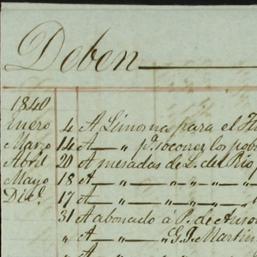 Deben
1840
Enero 4 A Limosna para el
Marzo 14 A — " p.ª socorrer los pob
Abril 20 A mesadas de L. del Rio,
Mayo 18 A — " — " — " — "
Dic.e 17 A — " — " — " — "
31 A abonado á P. de
" A — " — " G. T. Martin
" A — " — "